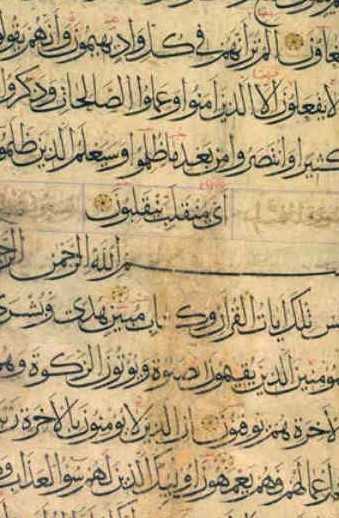 غاوون الم تر انهم في كل واد يهيمون وانهم يقولو
لا يفعلون الا الذين امنوا وعملوا الصالحات وذكروا
كثيرا وانتصروا من بعد ما ظلموا وسيعلم الذين ظلمو
اي منقلب ينقلبون
سم الله الرحمن الرح
طس تلك ايات القران وكتاب مبين هدى وبشرى
مومنين الذين يقيمون الصلوة ويوتون الزكوة وهم
لاخرة هم يوقنون ان الذين لا يومنون بالاخرة زينا
هم اعمالهم فهم يعمهون اوليك الذين لهم سوء العذاب و